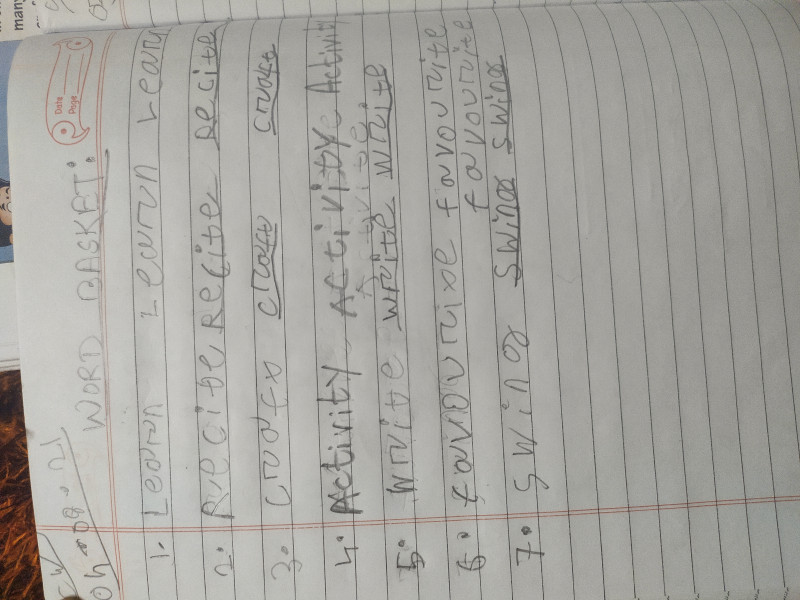 C.W
04-08-21
Date
Page
WORD BASKET:
1. Learn Learn Learn
2. Recite Recite Recite
3. craft craft
4. Activity Activity Activity
5. Write write write
6. favourite favourite
favourite
7. swing swing swing
many